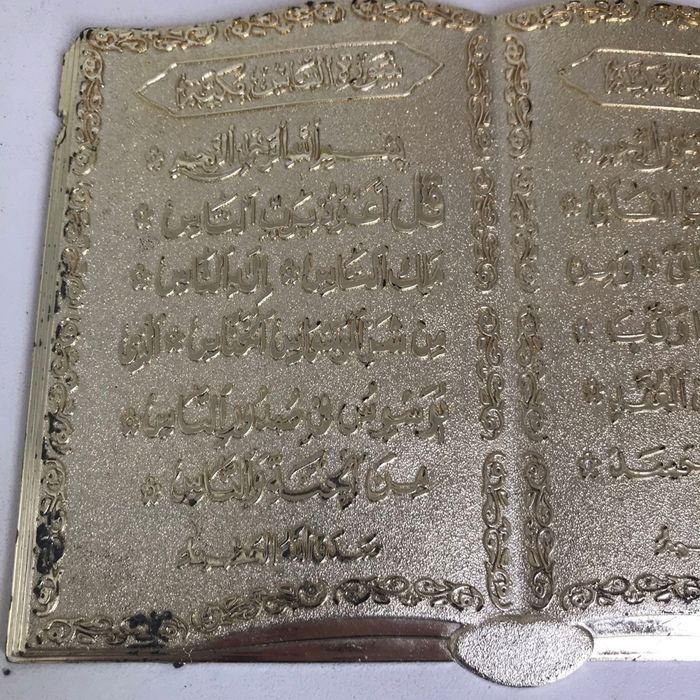 الرحيم *
الفلق *
* ومن
وقب *
العقد *
حسد *
سورة الناس مكية
بسم الله الرحمن الرحيم *
قُل أَعُوذُ بِرَبِّ النَّاسِ *
مَلِكِ النَّاسِ * إِلَهِ النَّاسِ *
مِن شَرِّ الْوَسْوَاسِ الْخَنَّاسِ * الَّذِي
يُوَسْوِسُ فِي صُدُورِ النَّاسِ *
مِنَ الْجِنَّةِ وَالنَّاسِ *
صدق الله العظيم